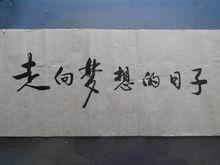 走向梦想的日子